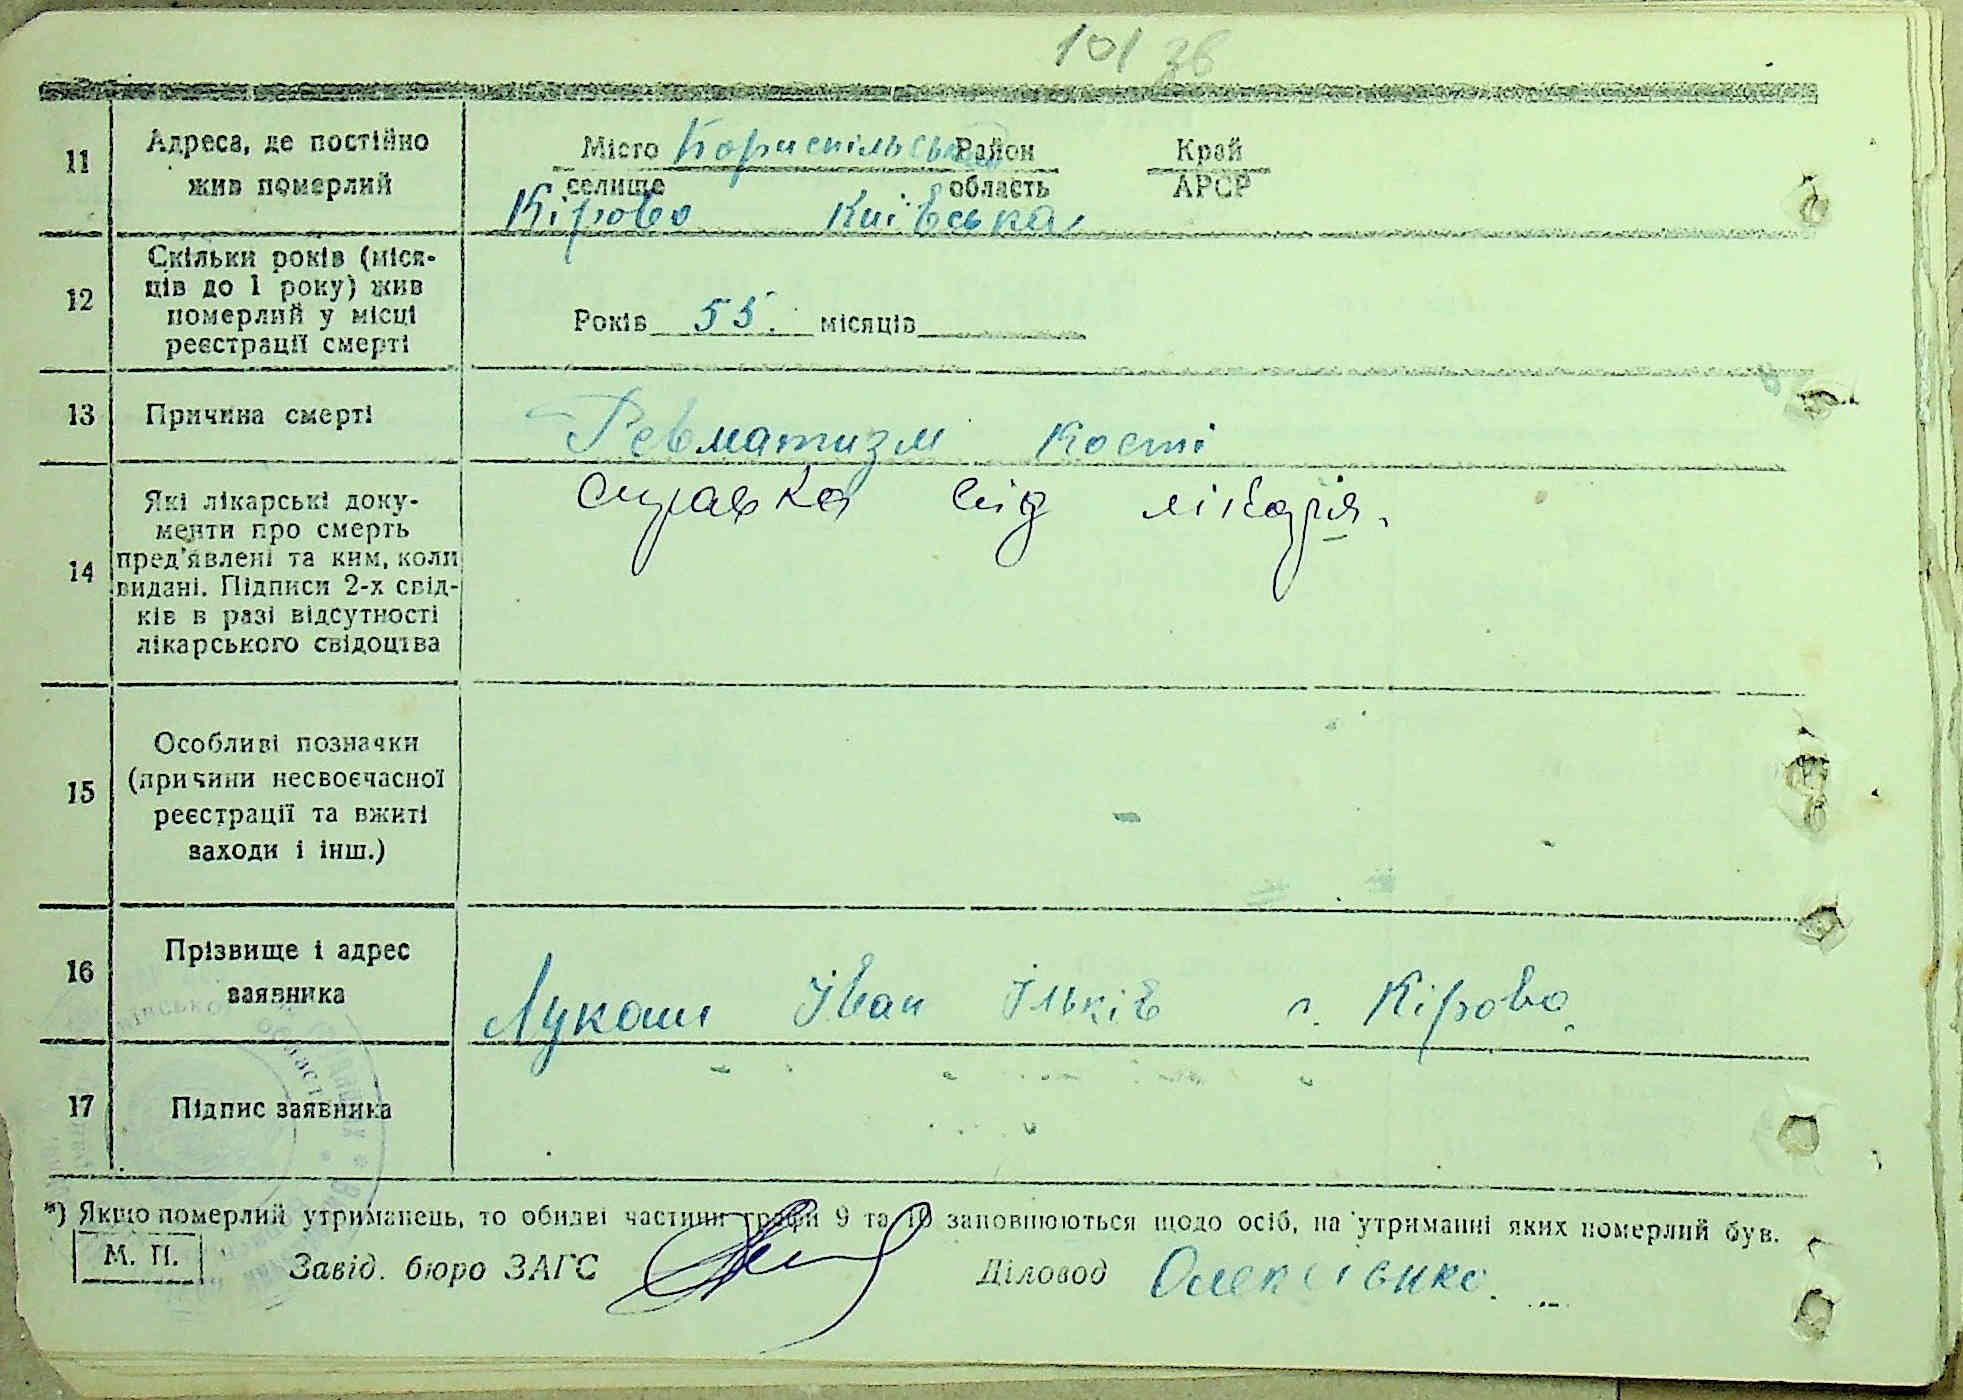 101 зв
11 Адреса, де постійно жив померлий
Місто Бориспільський Район Край
селище область АРСР
Кірово Київська
12 Скільки років (міся-
ців до 1 року) жив
померлий у місці
реєстрації смерті
Років 55. місяців
13 Причина смерті Ревматизм кості
14 Які лікарські доку-
менти про смерть
пред'явлені та ким, коли
видані. Підписи 2-х свід-
ків в разі відсутності
лікарського свідоцтва
Справка від лікаря.
15 Особливі позначки
(причини несвоєчасної
реєстрації та вжиті
заходи і інш.)
16 Прізвище і адрес
заявника
Лукаш Іван Ільків с. Кірово
17 Підпис заявника
*) Якщо померлий утриманець, то обидві частини графи 9 та 10 заповнюються щодо осіб, на утриманні яких померлий був.
М. П. Завід. бюро ЗАГС Діловод